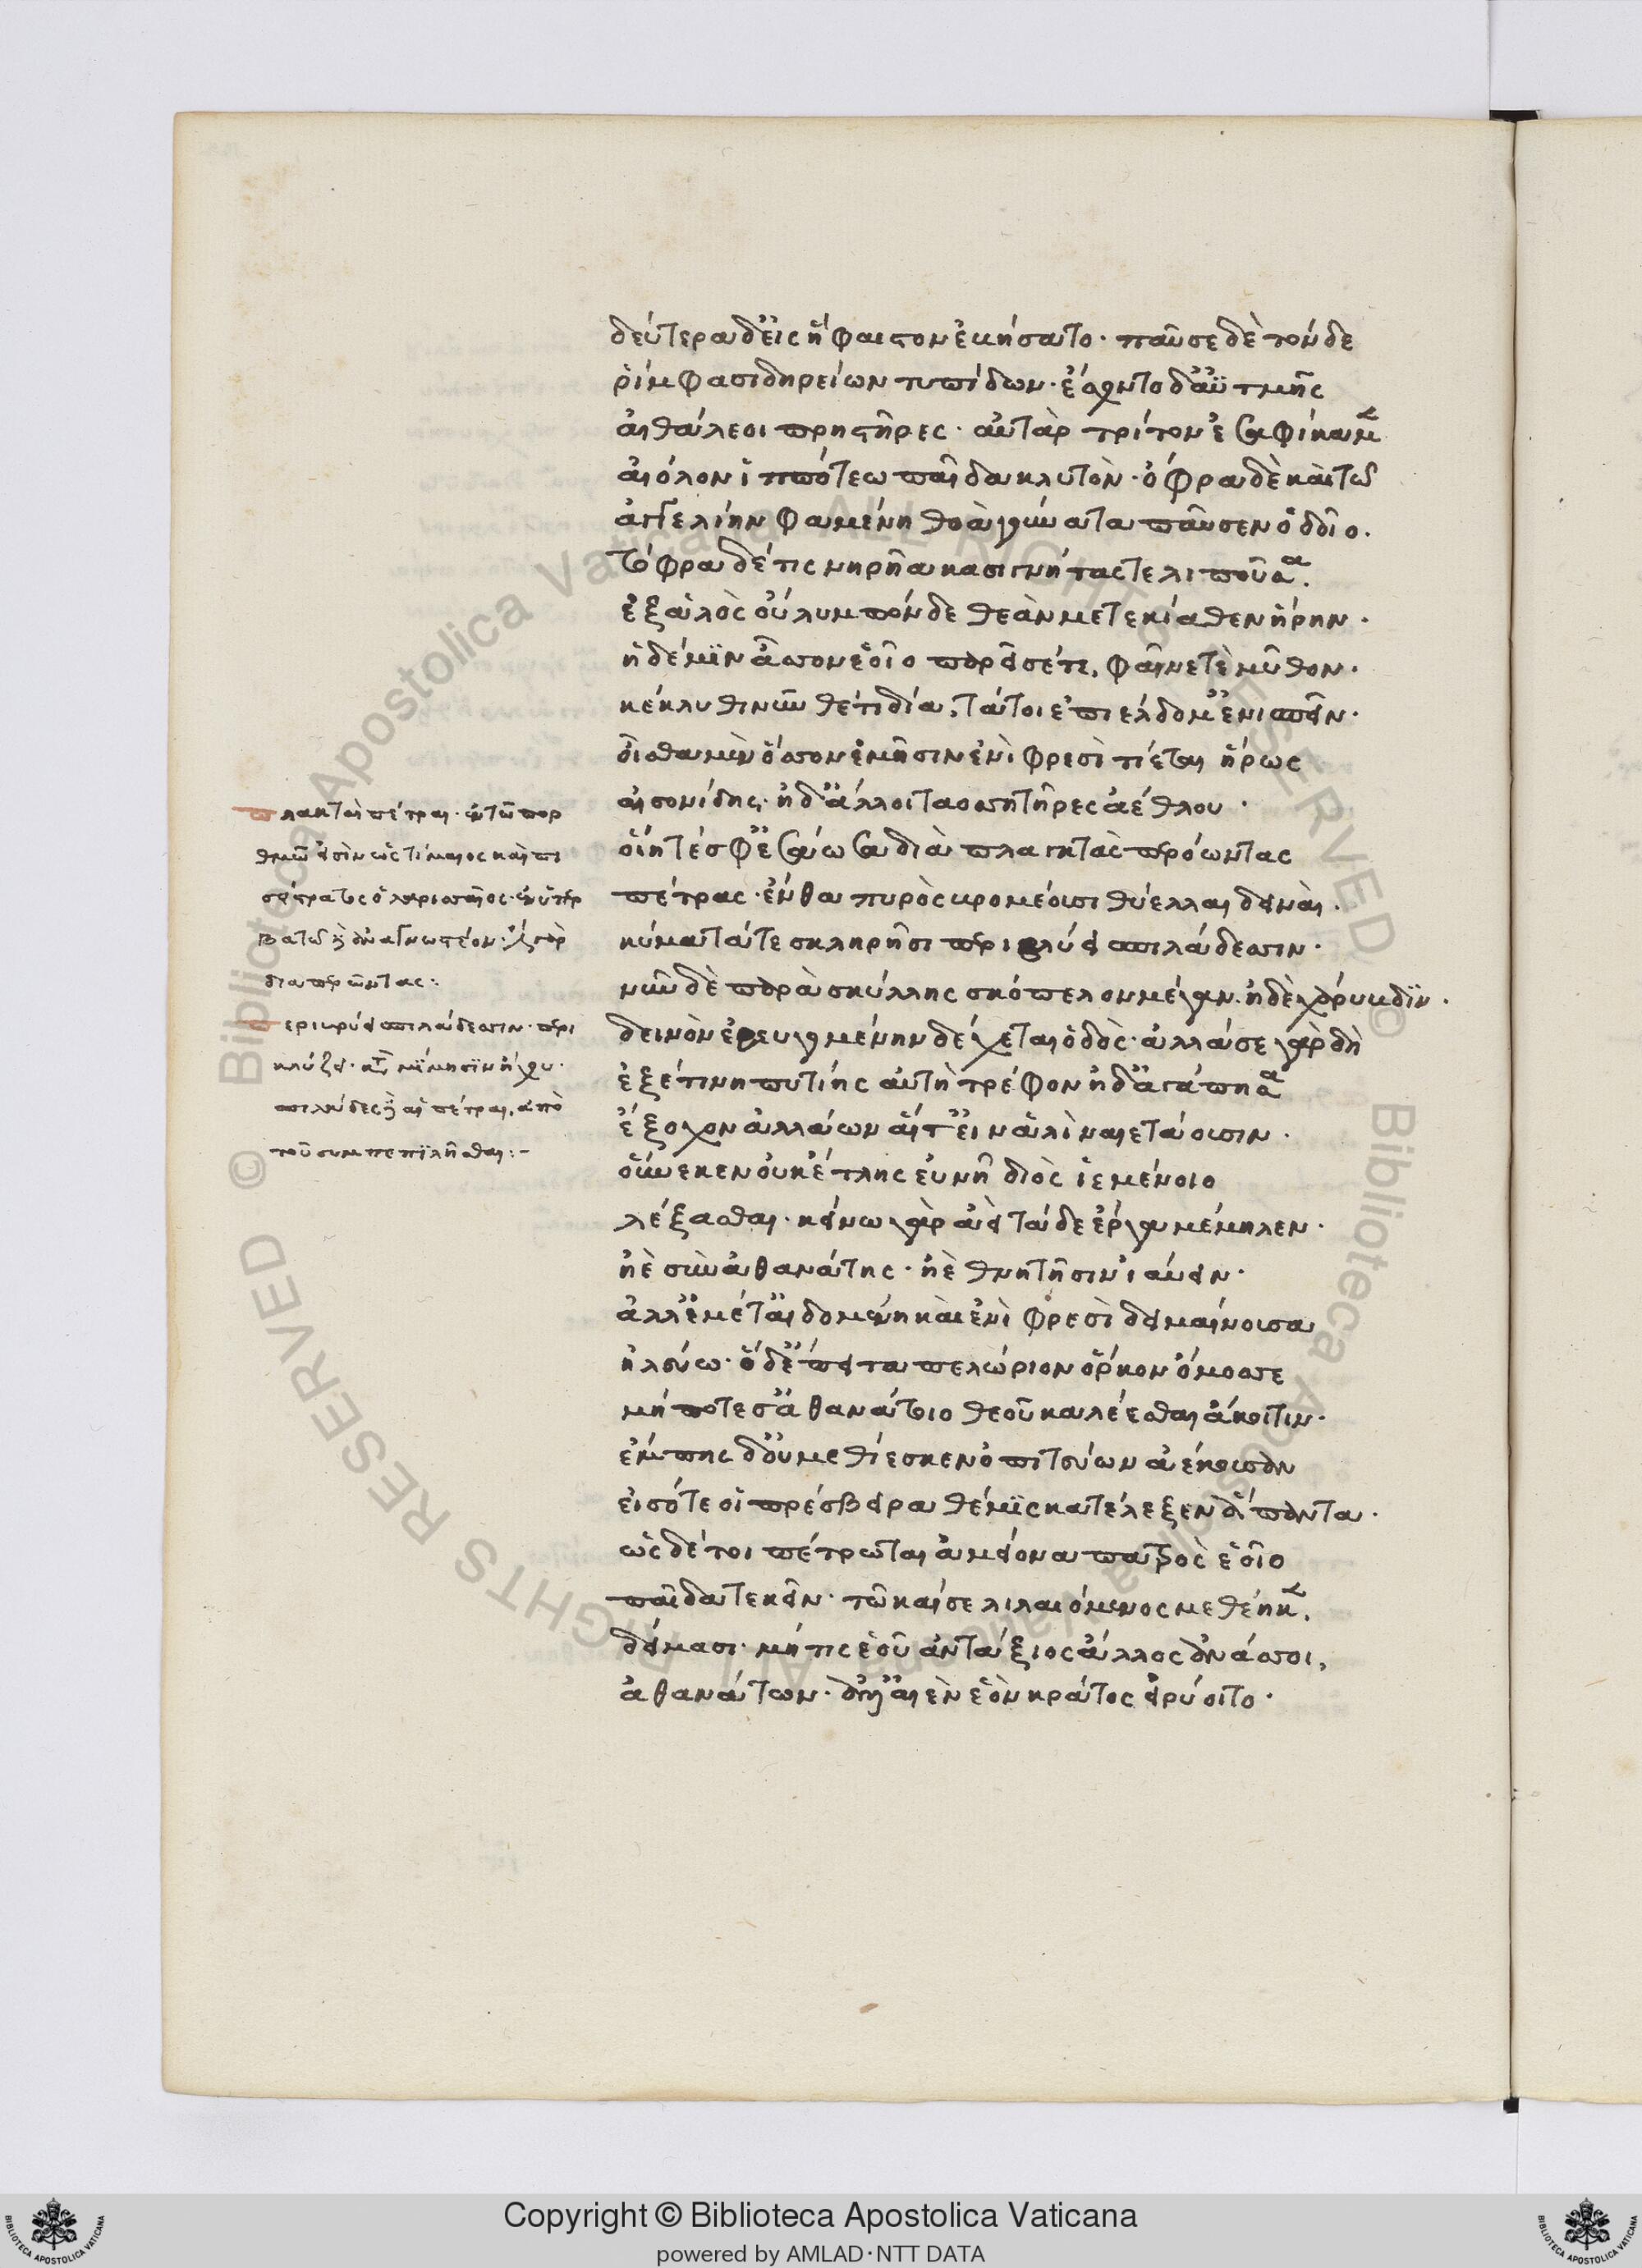 δεύτερα δ' εἰς ἥφαιστον ἐβήσατο· παῦσε δὲ τόνδε
ῥίμφα σιδηρείων τυπίδων· ἔσχοντο δ' ἀϋτμῆς
αἰθαλέοι πρηστῆρες· αὐτὰρ τρίτον εἰσαφίκανεν
αἴολον ἱππότεω παῖδα κλυτὸν· ὄφρα δὲ καὶ τῷ
ἀγγελίην φαμένη θοὰ γούνατα παῦσεν ὁδοῖο.
τόφρα δέ τις νηρῆα κασιγνήτας τε λιποῦσα.
ἐξ ἁλὸς οὔλυμπόνδε θεὰν μετεκίαθεν ἥρην·
ἡ δέ μϊν ἆσσον ἑοῖο παρεῖσέ τε, φαῖνέ τε μῦθον·
κέκλυθι νῦν θέτι δῖα, τά τοι ἐπιέλδομ' ἐνισπεῖν·
οἶσθα μὲν ὅσσον ἐμῇσιν ἐνὶ φρεσὶ τίεται ἥρως
αἰσονίδης· ἠδ' ἄλλοι τ' ἀοσσητῆρες ἀέθλου·
οἵη τέ σφ' ἐσάωσα διὰ πλαγκτὰς περόωντας
πέτρας· ἔνθα πυρὸς βρομέουσι θύελλαι δειναὶ.
κύματά τε σκληρῇσι περιβλύει σπιλάδεσσιν·
νῦν δὲ παρὰ σκύλλης σκόπελον μέγαν· ἠδὲ χάρυβδϊν·
δεινὸν ἐρευγομένην δέχεται ὁδὸς· ἀλλά σε γὰρ δὴ
ἐξέτι νηπυτίης αὐτὴ τρέφον ἠδ' ἀγάπησα
ἔξοχον ἀλλάων αἵ τ' εἰν ἁλὶ ναιετάουσιν·
οὕνεκεν οὐκ ἔτλης εὐνῇ διὸς ἱεμένοιο
λέξασθαι· κείνω γὰρ ἀεὶ τάδε ἔργα μέμηλεν·
ἠὲ σὺν ἀθανάτης· ἠὲ θνητῇσιν ἰαύειν·
ἀλλ' ἐμέ τ' αἰδομένη καὶ ἐνὶ φρεσὶ δειμαίνουσα
ἠλεύω· ὁ δ' ἔπειτα πελώριον ὅρκον ὄμοσσε
μή ποτέ σ' ἀθανάτοιο θεοῦ καλέεσθαι ἄκοιτιν·
ἔμπης δ' οὐ μεθίεσκεν ὀπιτεύων ἀέκουσαν
εἰσότε οἱ πρέσβειρα θέμϊς κατέλεξεν ἅπαντα·
ὡς δέ τοι πέτρωται ἀμείονα πατρὸς ἑοῖο
παῖδα τεκεῖν· τῶ καί σε λιλαιόμενος μεθέηκεν.
δείματι· μή τις ἑοῦ ἀντάξιος ἄλλος ἀνάσσοι,
ἀθανάτων· ἀλλ' αἰὲν ἑὸν κράτος εἰρύοιτο·
πλαγκταὶ πέτραι· ἐν τῶ πορ
θμῶ εἰσὶν ὡς τίμαιος καὶ πι
σίστρατος ὁ λιπαραῖος· ἐν ὑπερ
βατῶ δὲ ἀναγνωστέον·
διαπερῶντας:
περιβρύει σπιλάδεσσιν· περι
κλύζει· κατὰ μίμησϊν ἤχου·
σπιλάδες δὲ αἱ πέτραι, ἀπὸ
τοῦ συμπεπϊλῆσθαι:-
Copyright © Biblioteca Apostolica Vaticana
powered by AMLAD·NTT DATA